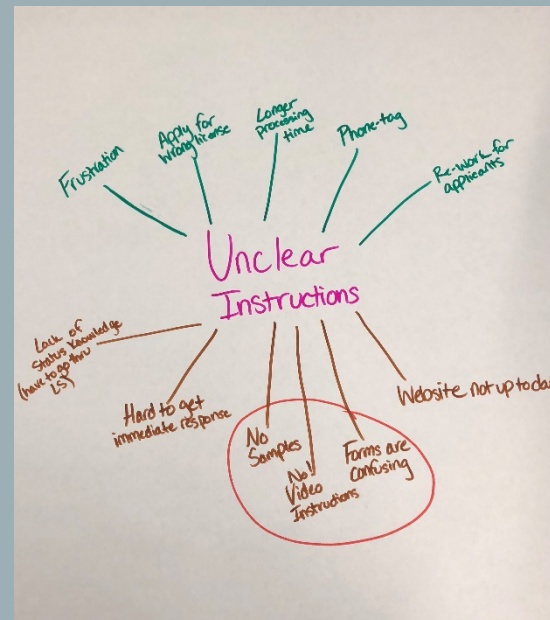 Frustration
Apply for
wrong license
Longer
processing
time
Phone-tag
Re-work for
applicants
Unclear
Instructions
Lack of
Status Knowledge
(have to go thru
LS)
Hard to get
immediate response
No
Samples
No
Video
Instructions
Forms are
confusing
Website not up to da